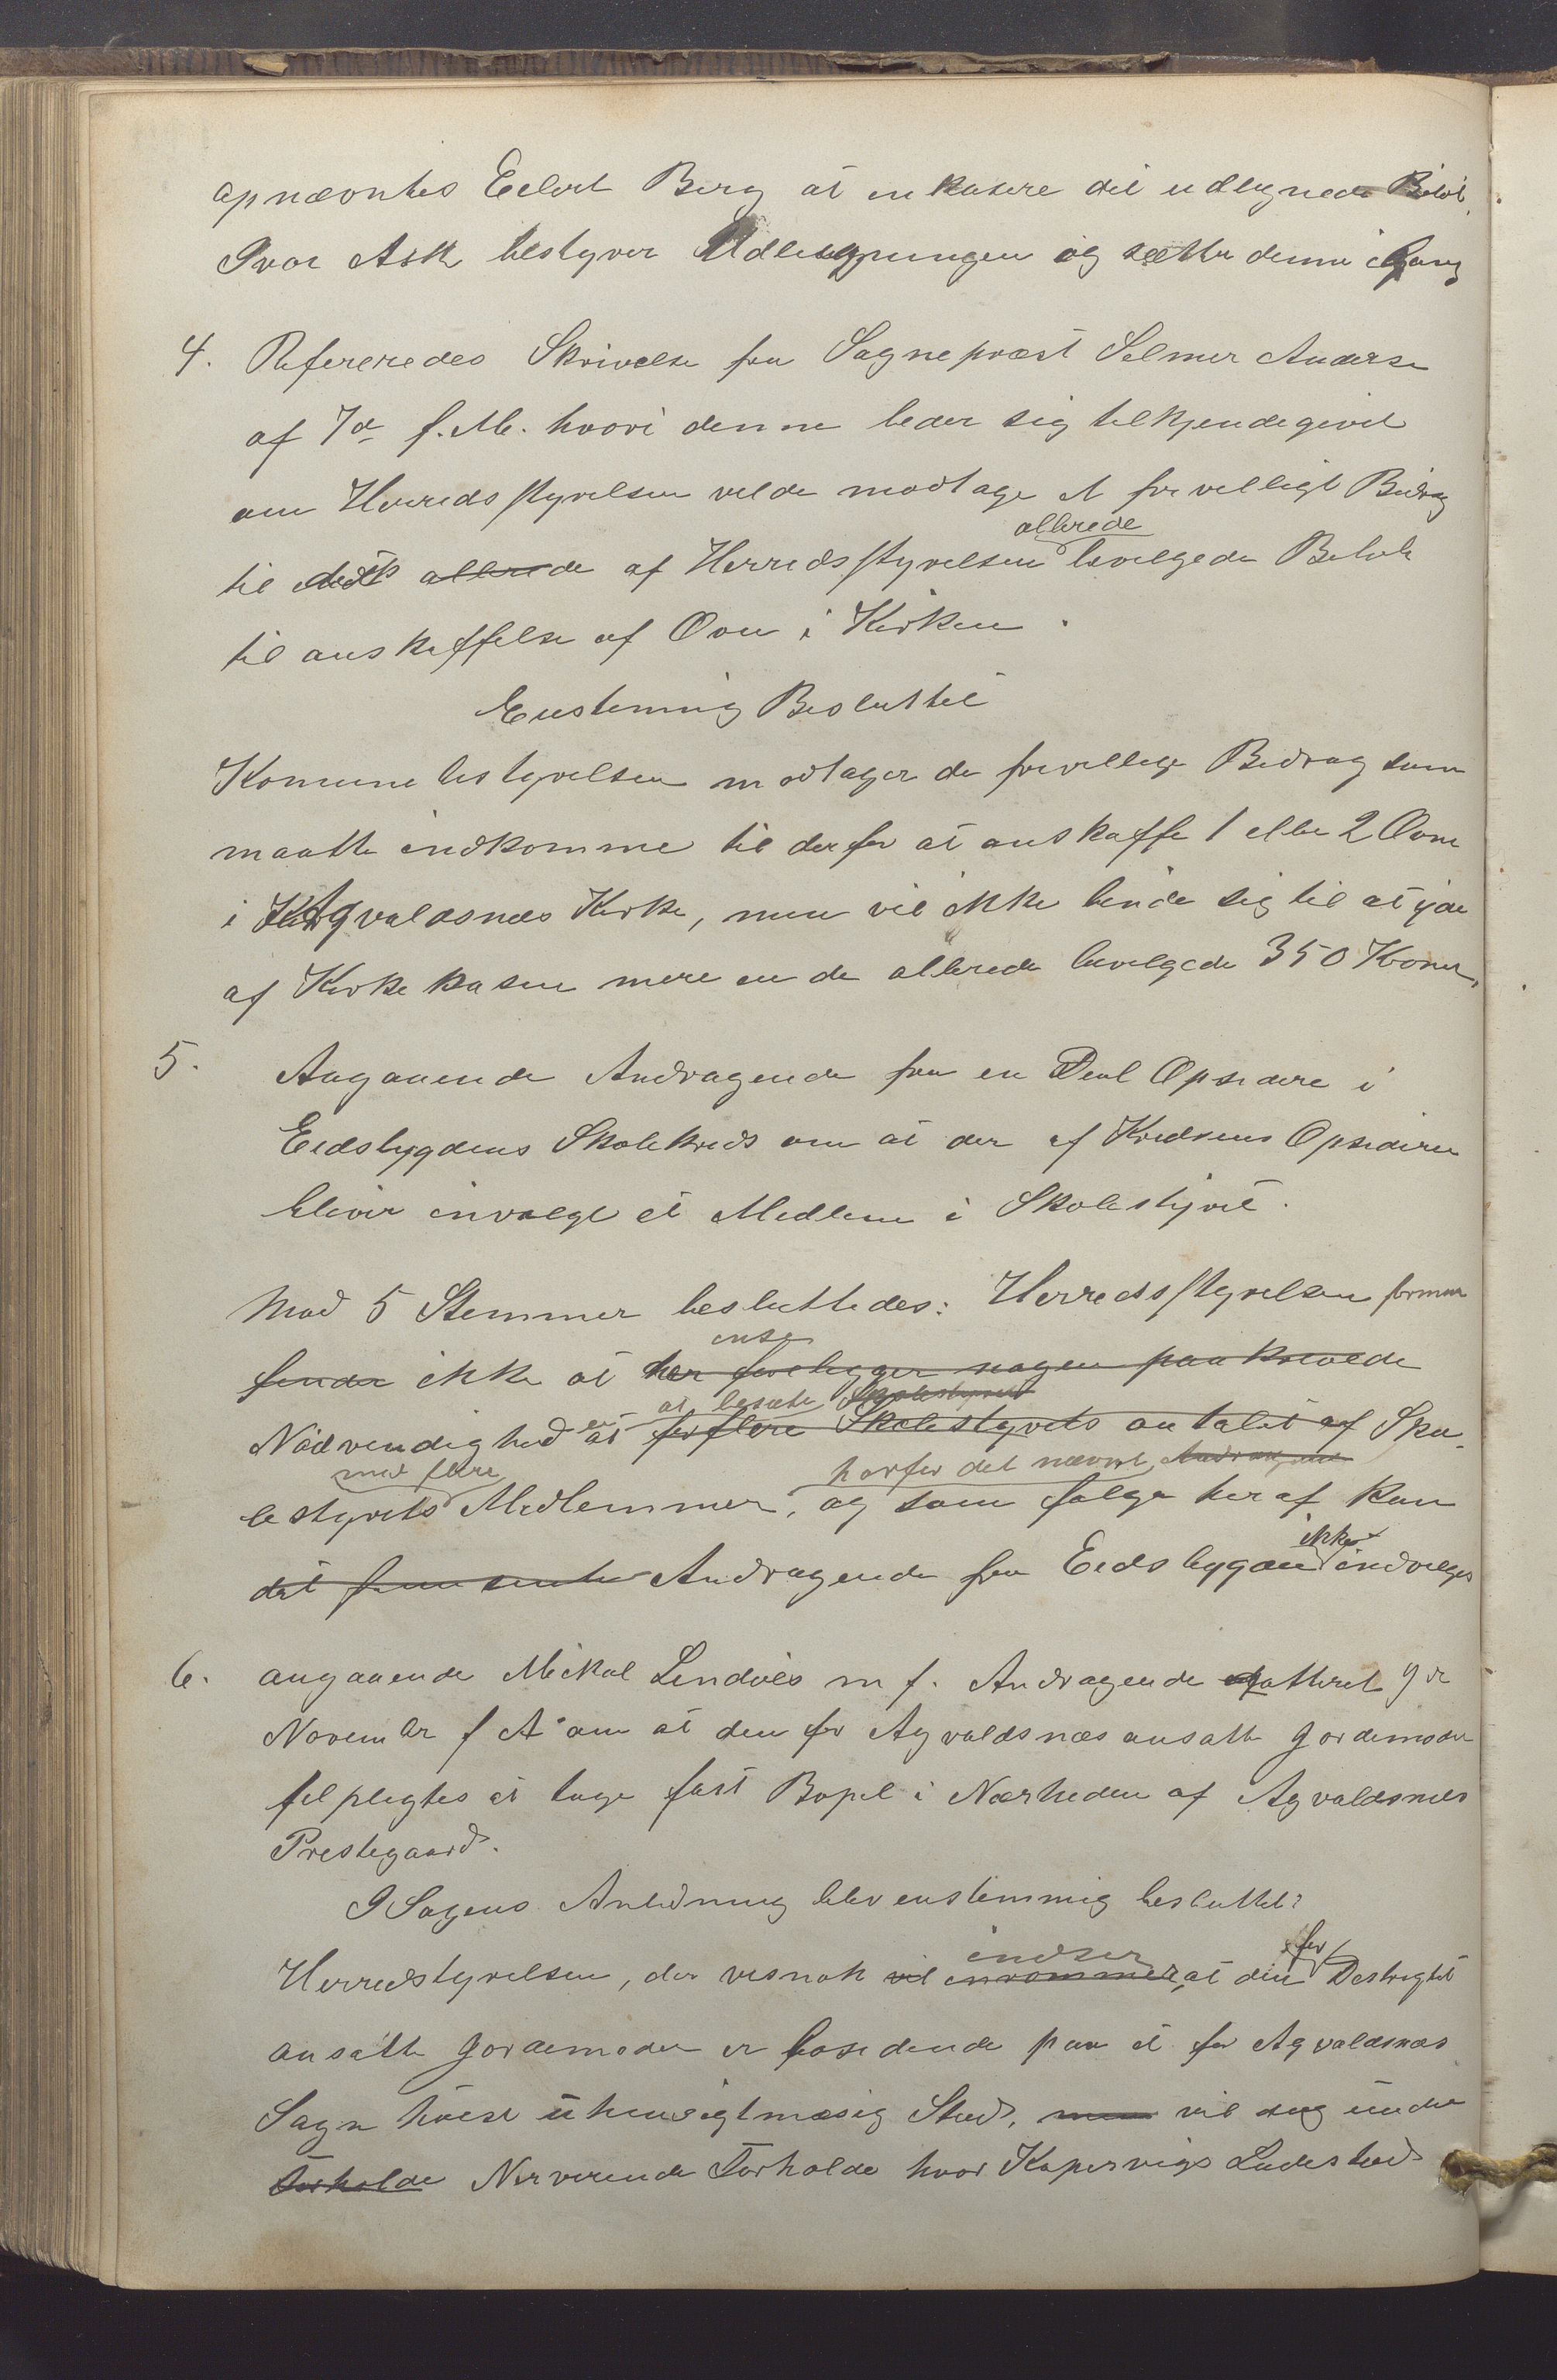 apnævntes Eelert Berg at inkasere det udlignede Beløb
Ivar Ask bestyrer Udligningen og sætter denne igang
4. Refereredes Skrivelse fra Sognepræst Selmer Anderse
af 7de f. M. hvori denne beder sig tilkjendegivet
om Herredsstyrelsen vilde modtage et frivilligt Bidrag
til det allerede af Herredsstyrelsen allerede bevilgede Beløb
til anskaffelse af Ovn i Kirken.
Enstemmig Besluttet
Komunebestyrelsen modtager de frivillige Bidrag som
maatte indkomme til derfor at anskaffe 1 eller 2 Ovne
i Agvaldsnes Kirke, men vil ikke binde sig til at yde
af Kirkekasen mere en de allerede bevilgede 350 Kroner,
5. Angaaende Andragende fra en Deel Opsidere i
Eidsbygdens Skolekreds om at der af Kredsens Opsidere
bliver invalgt et Medlem i Skolestyret.
Mod 5 Stemmer besluttedes: Herredsstyrelsen formen
finder ikke at her foreligger nogen paakrævede
Nødvendighed at forflere Skolestyrets antalet af Sko-
at besætte Skolestyret
lestyrets med flere Medlemmer, og som følge heraf kan
horfor det nævnt Andragende
det Andragende fra Eidsbygden ikke indvilges
6. angaaende Mickal Lindøes m f. Andragende datteret 9de
November f A om at den for Agvaldsnæs ansatte Gordemoder
filpligtes at tage fast Bopel i Nærheden af Agvaldsnes
Prestegaard.
I Sagens Anledning blev enstemmig besluttet:
Herredstyrelsen, der vesnok vil inrømmer indser at den for Destrigtet
ansatte Gordemoder er bosidende paa et for Agvaldsnæs
Sogn høist uhensigtmæsig Sted, men vil dog under
Forholde Nerverende Forholde hvor Kopervigs Ladested